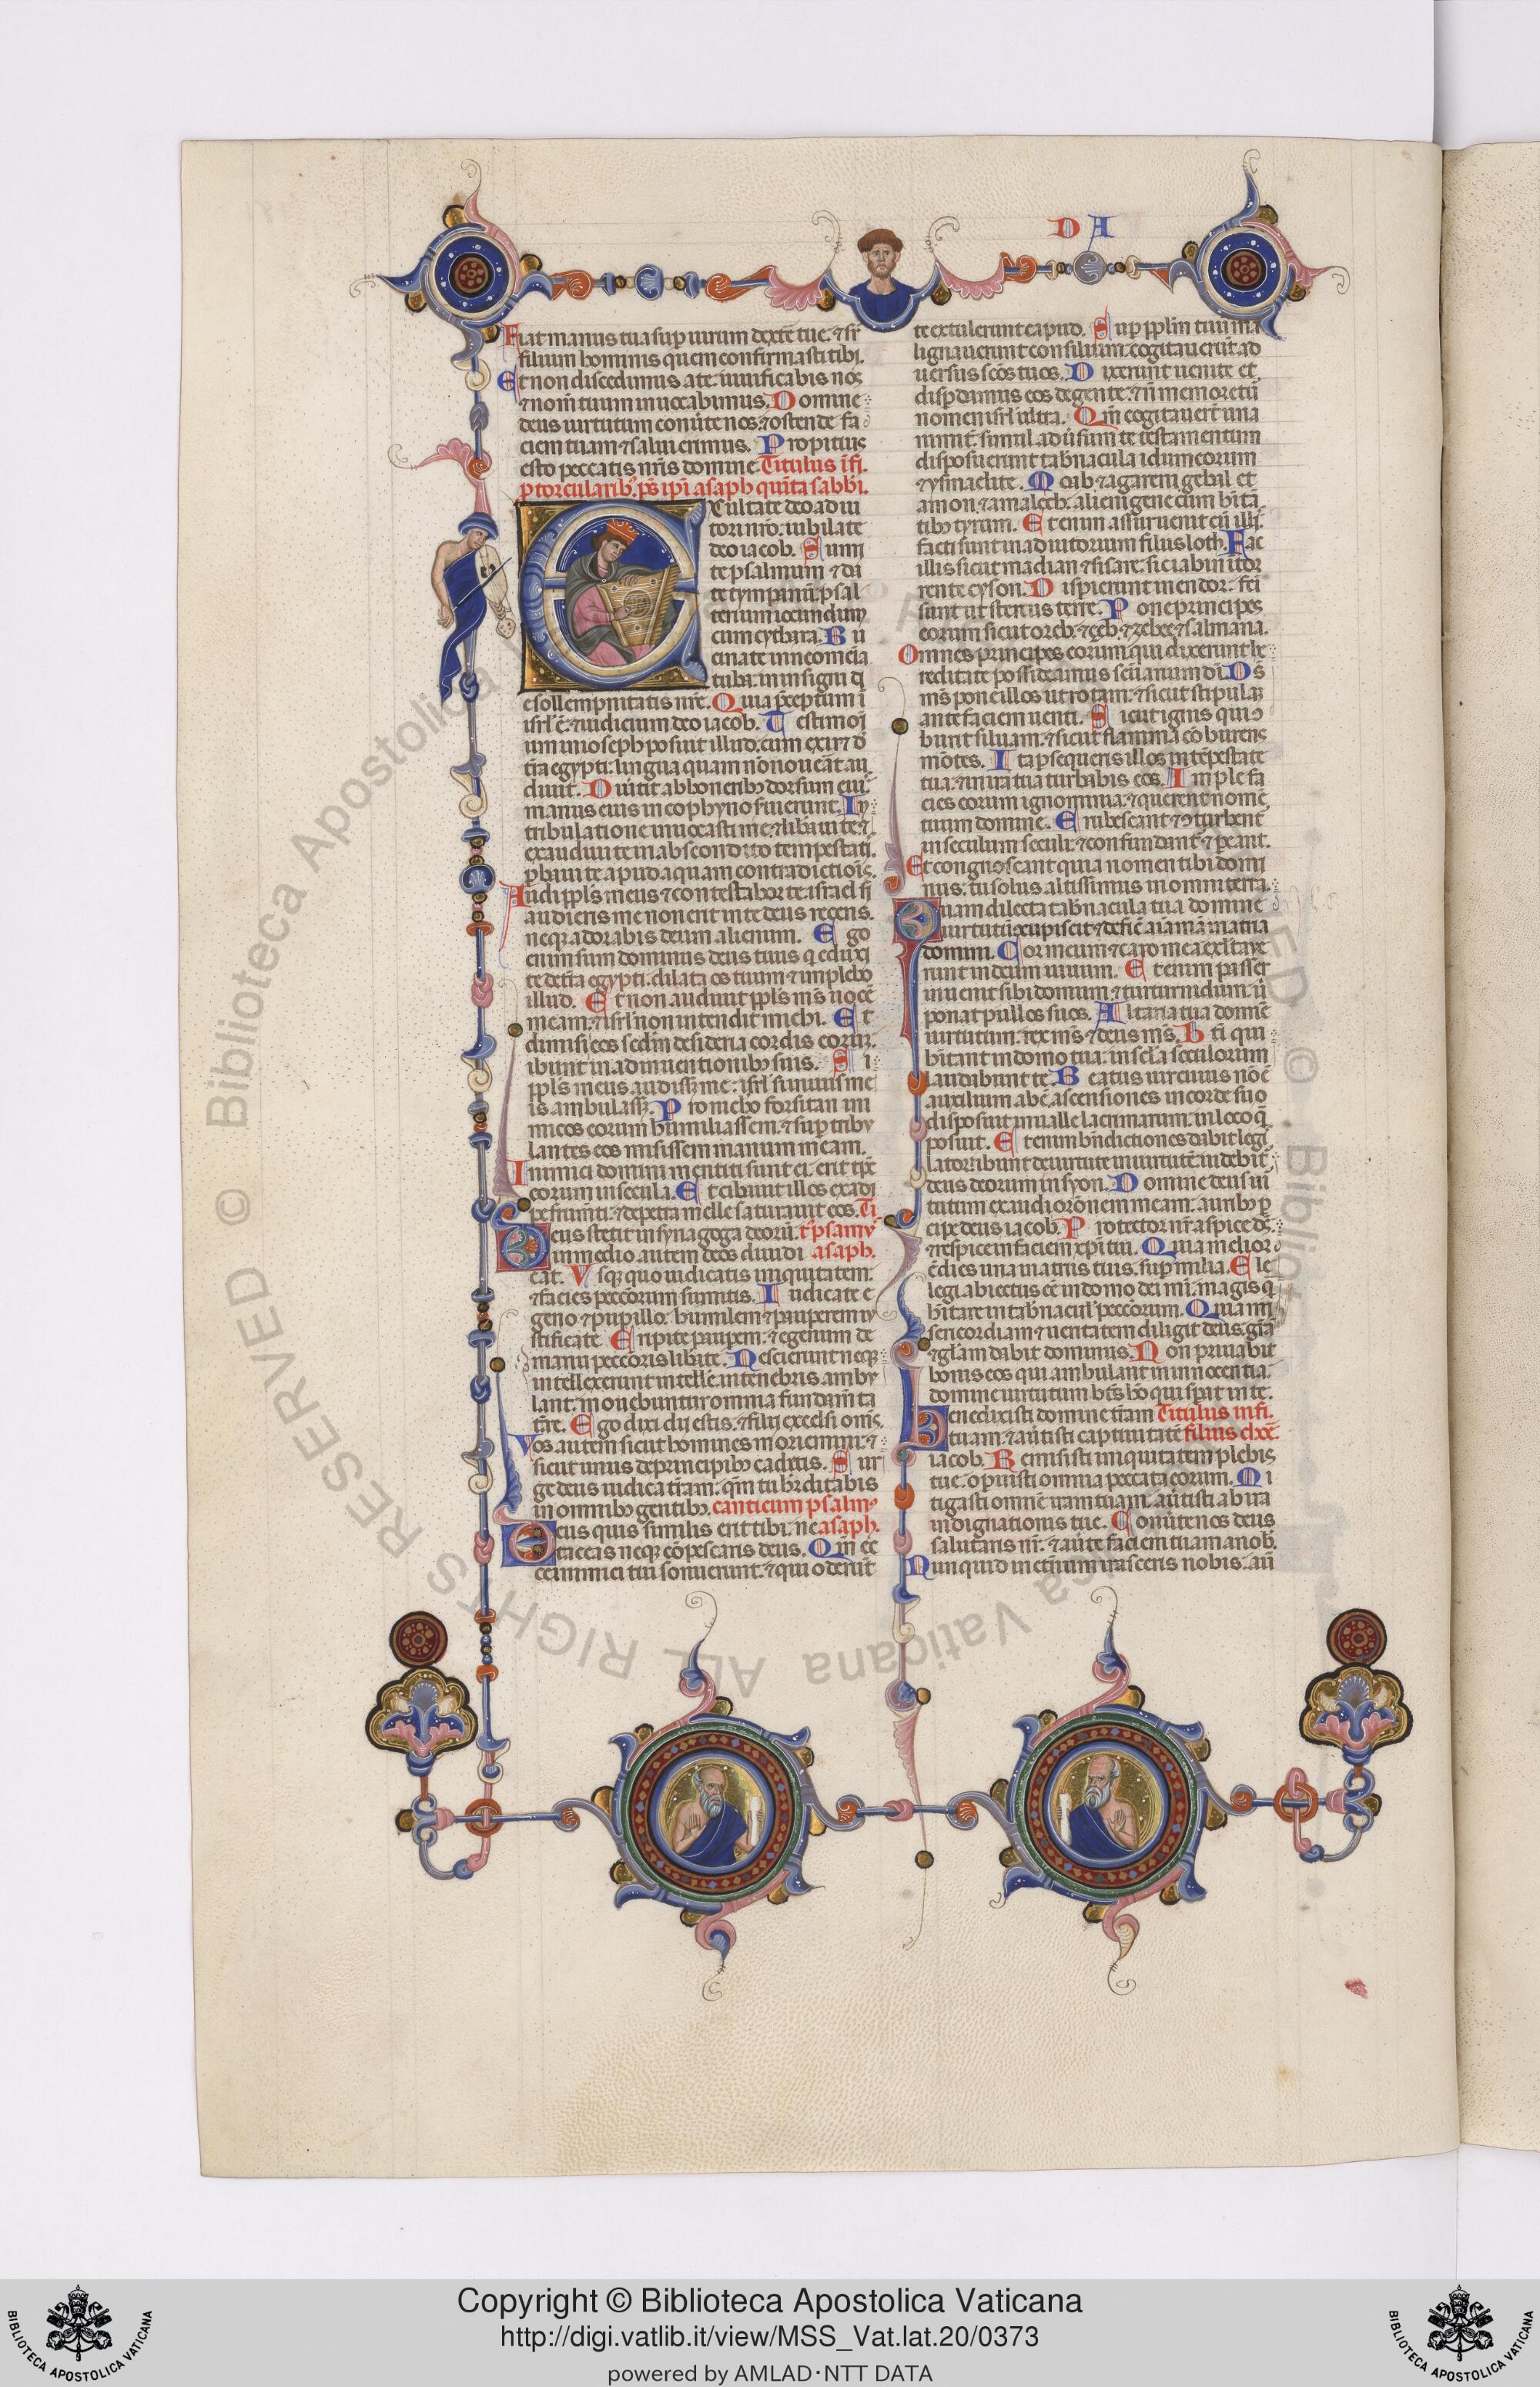 D A
Fiat manus tua sup uirum dexte tue. ⁊ sr̃
filium hominis quem confirmasti tibi.
Et non discedimus a te. uiuificabis nos
⁊ nom̃ tuum inuocabimus. Domine
deus uirtutum conũte nos. ⁊ ostende fa
ciem tuam ⁊ salui erimus. Propitius
esto peccatis nr̃is domine. Titulus ĩ fi.
p torcularib; ps ip̃i asaph quĩta sabbi.
Exultate deo adiu
tori nr̃o. iubilate
deo iacob. Sumi
te psalmum ⁊ da
te tympanũ. psal
terium iocundum
cum cythara. Bu
cinate in neomeĩa
tuba. in insigni di
e sollempnitatis nr̃e. Quia p̃ceptum ĩ
isrl̃ ẽ. ⁊ iudicium deo iacob. Testimoĩ
um in ioseph posuit illud. cum exiret d
tr̃a egypti. linguã quam nõ nouerat au
diuit. Diũtit ab honerib; dorsum eius.
manus eius in cophyno seruierunt. In
tribulatione inuocasti me. ⁊ libaui te. ⁊
exaudiui te in abscondito tempestatis.
pbaui te apud aquam contradictiõis.
Audi ppl̃s meus ⁊ contestabor te. israel si
audieris me non erit in te deus recens.
neq; adorabis deum alienum. Ego
enim sum dominus deus tuus q eduxi
te de tr̃a egypti. dilata os tuum ⁊ implebo
illud. Et non audiuit ppl̃s ms̃ uocẽ
meam. ⁊ isrl̃ non intendit michi. Et
dimisi eos scd̃m desideria cordis eorum.
ibunt in adinuentionib; suis. Si
ppl̃s meus audiss; me. isrl̃ si in uiis me
is ambulass;. Pro nichõ forsitan ini
micos eorum humiliassem. ⁊ sup tribu
lantes eos misissem manum meam.
Inimici domini mentiti sunt ei. erit tp̃s
eorum in secula. Et cibauit illos ex adi
pe frumti. ⁊ de petra melle saturauit eos. Ti
Deus stetit in synagoga deorũ. t ̓psamꝰ
in medio autem deos diiudi asaph.
cat. Vsq; quo iudicatis iniquitatem.
⁊ facies peccõrum sumitis. Iudicate e
geno ⁊ pupillo. humilem ⁊ pauperem iu
stificate. Eripite paupem. ⁊ egenum de
manu peccõris libate. Nescierunt neq;
intellexerunt in tenebris ambu
lant. mouebuntur omnia fundam̃ta
tr̃re. Ego dixi dij estis. ⁊ filij excelsi om̃s.
Vos autem sicut homines moriemini. ⁊
sicut unus de principib; cadetis. Sur
ge deus iudica tr̃am. qm̃ tu hr̃ditabis
in omnib; gentib;. canticum psalmꝰ
Deus quis similis erit tibi. ne asaph.
taceas neq; cõpescaris deus. Qm̃ ec
ce inimici tui sonuerunt. ⁊ qui oderũt
te extulerunt capud. Sup ppl̃m tuũ ma
lignauerunt consilium. cogitauerũt ad
uersus scõs tuos. Dixerunt uenite et
disp̃damus eos de gente. ⁊ ñ memoretũ
nomen isrl̃ ultra. Qm̃ cogitauerũt una
nimit̃. simul adũsum te testamentum
disposuerunt tab̃nacula idumeorum
⁊ ysmaelite. Moab ⁊ agareni gebal et
amon. ⁊ amalech. alienigene cum hĩta
tib; tyrum. Etenim assur uenit cũ illi.
facti sunt in adiutorium filiis loth. Fac
illis sicut madian ⁊ sisare. sic iabin ĩ tor
rente cyson. Dispierunt in endor. fci
sunt ut stercus terre. Pone principes
eorum sicut oreb. ⁊ zeb. ⁊ zebee ⁊ salmana.
Omnes principes eorum qui dixerunt he
reditate possideamus scũarium dĩ. Ds̃
ms̃ pone illos ut rotam. ⁊ sicut stipulam
ante faciem uenti. Sicut ignis qui 9
burit siluam. ⁊ sicut flamma comburens
mõtes. Ita psequeris illos in tẽpestate
tua. ⁊ in ira tua turbabis eos. Imple fa
cies eorum ignominia. ⁊ querent nomẽ
tuum domine. Erubescant ⁊ 9turbent̃
in seculum seculi. ⁊ confundant̃ ⁊ peant.
Et congnoscant quia nomen tibi domi
nus. tu solus altissimus in omni terra.
Quam dilecta tab̃nacula tua domine
uirtutũ. 9cupiscit ⁊ deficẽ aĩa mã in atria
domini. Cor meum ⁊ caro mea exltaue
runt in deum uiuum. Etenim passer
inuenit sibi domum. ⁊ turtur nidum. ũ
ponat pullos suos. Altaria tua domĩe
uirtutum. rex ms̃ ⁊ deus ms̃. Bt̃i qui
hĩtant in domo tua. in scl̃a seculorum
laudabunt te. Beatus uir cuius nõẽ
auxilium abs te. ascensiones in corde suo
disposuit in ualle lacrimarum. in loco q̃
posuit. Etenim bñdictiones dabit legi
lator. ibunt de uirtute in uirtutẽ. uidebit̃
deus deorum in syon. Domine deus uir
tutum exaudi orõnem meam. aurib; p
cipe deus iacob. Protector nr̃ aspice ds̃.
⁊ respice in faciem xp̃i tui. Quia melior
ẽ dies una in atriis tuis. sup milia. Ele
legi abiectus eẽ in domo dei mi. magis q
hĩtare in tab̃nacul' peccõrum. Quia mi
sericordiam ⁊ ueritatem diligit deus. grã
⁊ glam dabit dominus. Non priuabit
bonis eos qui ambulant in innocentia.
domine uirtutum bt̃s hõ qui spat in te.
Benedixisti domine tr̃am Titulus in fi.
tuam. aũtisti captiuitatẽ filiis chore.
iacob. Remisisti iniquitatem plebis
tue. opuisti omnia peccata eorum. Mi
tigasti omnẽ iram tuam. aũtisti ab ira
indignationis tue. Conũte nos deus
salutaris nr̃. ⁊ aũte faciem tuam a nob̃.
Nunquid in et̃num irasceris nobis. aũ
© Biblioteca Apostolica Vaticana ALL RIGHTS RESERVED
Copyright © Biblioteca Apostolica Vaticana
http://digi.vatlib.it/view/MSS_Vat.lat.20/0373
powered by AMLAD･NTT DATA
BIBLIOTECA APOSTOLICA VATICANA
BIBLIOTECA APOSTOLICA VATICANA